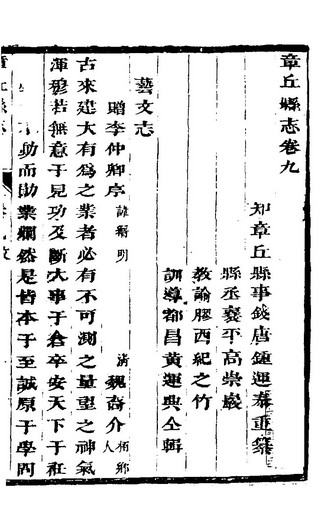 章丘縣志卷九
知章丘縣事錢唐鍾運泰重纂
縣丞襄平高崇巖
教諭膠西紀之竹
訓導都昌黃運興仝輯
藝文志
贈李仲卿序 諱緝明 清 魏裔介 柏鄉人
古來建大有爲之業者必有不可測之量望之神氣
渾穆若無意于見功及斷大事于倉卒安天下于社
動而勛業爛然是皆本于至誠原于學問